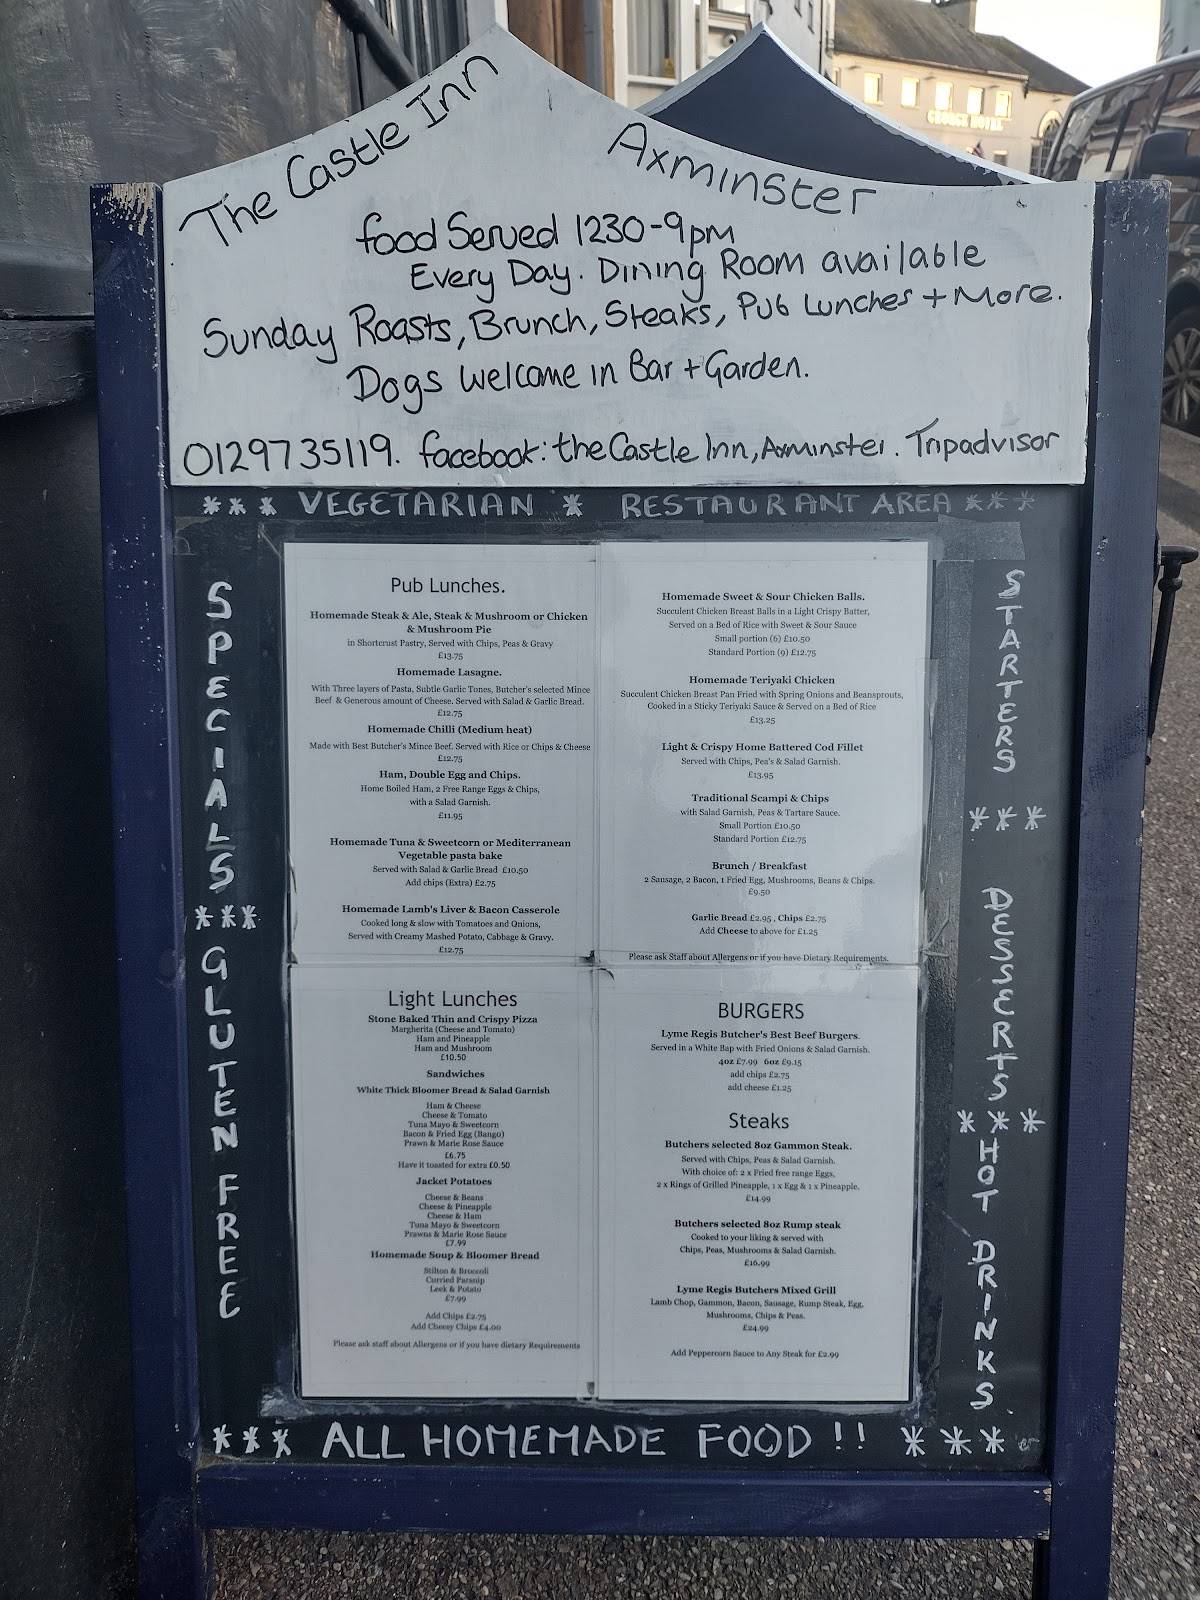 GEORGE HOTEL
The Castle Inn
Axminster
food Served 1230-9pm
Every Day. Dining Room available
Sunday Roasts, Brunch, Steaks, Pub Lunches + More.
Dogs welcome in Bar + Garden.
01297 35119. facebook: the Castle Inn, Axminster. Tripadvisor
*** VEGETARIAN * RESTAURANT AREA ***
SPECIALS
***
GLUTEN FREE
Pub Lunches.
Homemade Steak & Ale, Steak & Mushroom or Chicken
& Mushroom Pie
in Shortcrust Pastry, Served with Chips, Peas & Gravy
£13.75
Homemade Lasagne.
With Three layers of Pasta, Subtle Garlic Tones, Butcher's selected Mince
Beef & Generous amount of Cheese. Served with Salad & Garlic Bread.
£12.75
Homemade Chilli (Medium heat)
Made with Best Butcher's Mince Beef. Served with Rice or Chips & Cheese
£12.75
Ham, Double Egg and Chips.
Home Boiled Ham, 2 Free Range Eggs & Chips,
with a Salad Garnish.
£11.95
Homemade Tuna & Sweetcorn or Mediterranean
Vegetable pasta bake
Served with Salad & Garlic Bread £10.50
Add chips (Extra) £2.75
Homemade Lamb's Liver & Bacon Casserole
Cooked long & slow with Tomatoes and Onions,
Served with Creamy Mashed Potato, Cabbage & Gravy.
£12.75
Homemade Sweet & Sour Chicken Balls.
Succulent Chicken Breast Balls in a Light Crispy Batter,
Served on a Bed of Rice with Sweet & Sour Sauce
Small portion (6) £10.50
Standard Portion (9) £12.75
Homemade Teriyaki Chicken
Succulent Chicken Breast Pan Fried with Spring Onions and Beansprouts,
Cooked in a Sticky Teriyaki Sauce & Served on a Bed of Rice
£13.25
Light & Crispy Home Battered Cod Fillet
Served with Chips, Pea's & Salad Garnish.
£13.95
Traditional Scampi & Chips
with Salad Garnish, Peas & Tartare Sauce.
Small Portion £10.50
Standard Portion £12.75
Brunch / Breakfast
2 Sausage, 2 Bacon, 1 Fried Egg, Mushrooms, Beans & Chips.
£9.50
Garlic Bread £2.95 , Chips £2.75
Add Cheese to above for £1.25
Please ask Staff about Allergens or if you have Dietary Requirements.
Light Lunches
Stone Baked Thin and Crispy Pizza
Margherita (Cheese and Tomato)
Ham and Pineapple
Ham and Mushroom
£10.50
Sandwiches
White Thick Bloomer Bread & Salad Garnish
Ham & Cheese
Cheese & Tomato
Tuna Mayo & Sweetcorn
Bacon & Fried Egg (Bango)
Prawn & Marie Rose Sauce
£6.75
Have it toasted for extra £0.50
Jacket Potatoes
Cheese & Beans
Cheese & Pineapple
Cheese & Ham
Tuna Mayo & Sweetcorn
Prawns & Marie Rose Sauce
£7.99
Homemade Soup & Bloomer Bread
Stilton & Broccoli
Curried Parsnip
Leek & Potato
£7.99
Add Chips £2.75
Add Cheesy Chips £4.00
Please ask staff about Allergens or if you have dietary Requirements
BURGERS
Lyme Regis Butcher's Best Beef Burgers.
Served in a White Bap with Fried Onions & Salad Garnish.
4oz £7.99 6oz £9.15
add chips £2.75
add cheese £1.25
Steaks
Butchers selected 8oz Gammon Steak.
Served with Chips, Peas & Salad Garnish.
With choice of: 2 x Fried free range Eggs,
2 x Rings of Grilled Pineapple, 1 x Egg & 1 x Pineapple.
£14.99
Butchers selected 8oz Rump steak
Cooked to your liking & served with
Chips, Peas, Mushrooms & Salad Garnish.
£16.99
Lyme Regis Butchers Mixed Grill
Lamb Chop, Gammon, Bacon, Sausage, Rump Steak, Egg,
Mushrooms, Chips & Peas.
£24.99
Add Peppercorn Sauce to Any Steak for £2.99
STARTERS
***
DESSERTS
***
HOT DRINKS
*** ALL HOMEMADE FOOD !! ***